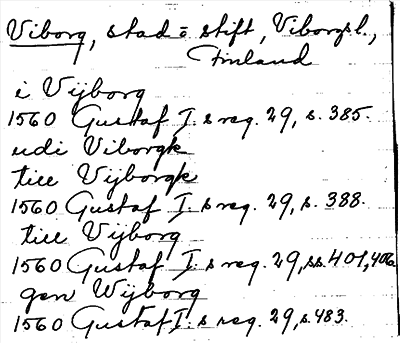 Viborg, stad o stift, Viborgsl.,
Finland
i Vijborg
1560 Gustaf I:s reg. 29, s. 385.
udi Viborgk
till Vijborgk
1560 Gustaf I:s reg. 29, s. 388.
till Vijborg
1560 Gustaf I:s reg. 29, ss. 401, 406.
gen Wijborg
1560 Gustaf I:s reg. 29, s. 483.